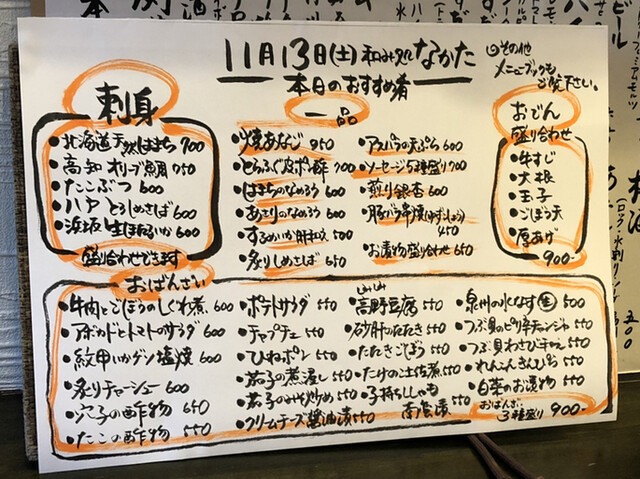 11月13日(土) 和み処 なかた
本日のおすすめ肴
その他
メニューブックも
ご覧下さい。
刺身
・北海道天然はまち 700
・高知 オリーブ鯛 750
・たこぶつ 600
・八戸 とろしめさば 600
・浜坂 生ほたるいか 600
盛り合わせできます
一品
・焼あなご 950
・とらふぐ皮ポン酢 700
・はまちのなめろう 600
・あさりのなめろう 600
・するめいか肝和え 500
・炙りしめさば 650
・アスパラの天ぷら 600
・ソーセージ5種盛り 700
・煎り銀杏 600
・豚バラ串焼(ゆずこしょう)
450
・お漬物盛り合せ 650
おでん
盛り合わせ
・牛すじ
・大根
・玉子
・ごぼう天
・厚あげ
900-
おばんざい
・牛肉とごぼうのしぐれ煮 600
・アボカドとトマトのサラダ 600
・紋甲いかゲソ塩焼 600
・炙りチャーシュー 600
・穴子の酢物 650
・たこの酢物 550
・ポテトサラダ 550
・チャプチェ 550
・ひねポン 550
・茄子の煮浸し 550
・茄子のみそ炒め 550
・クリームチーズ醤油漬 550
・高野豆腐 550
・砂肝のたたき 550
・たたきごぼう 550
・たけのこ土佐煮 550
・子持ちししゃも
南蛮漬 550
・泉州の水なす 生 500
・つぶ貝のピリ辛チャンジャ 550
・つぶ貝わさびキャビ 550
・れんこんきんぴら 550
・白菜のお漬物 550
おばんざい
3種盛り 900-